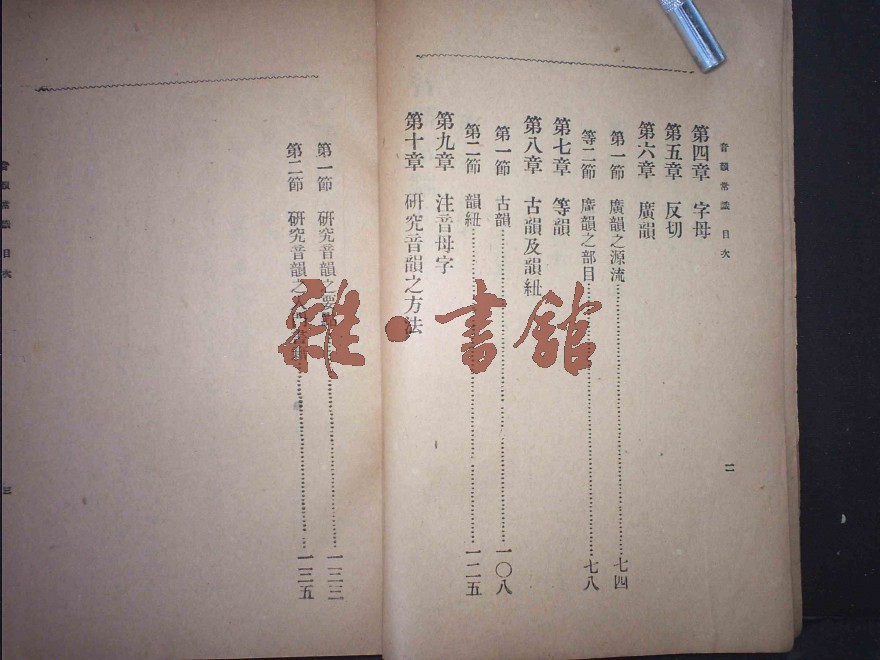 音韻常識 目次
二
第四章 字母
第五章 反切
第六章 廣韻
第一節 廣韻之源流……七四
等二節 廣韻之部目……七八
第七章 等韻
第八章 古韻及韻紐
第一節 古韻……一〇八
第二節 韻紐……一二五
第九章 注音母字
第十章 研究音韻之方法
第一節 研究音韻之要點……一三三
第二節 研究音韻之入門書……一三五
音韻常識 目次
三
雜·書館